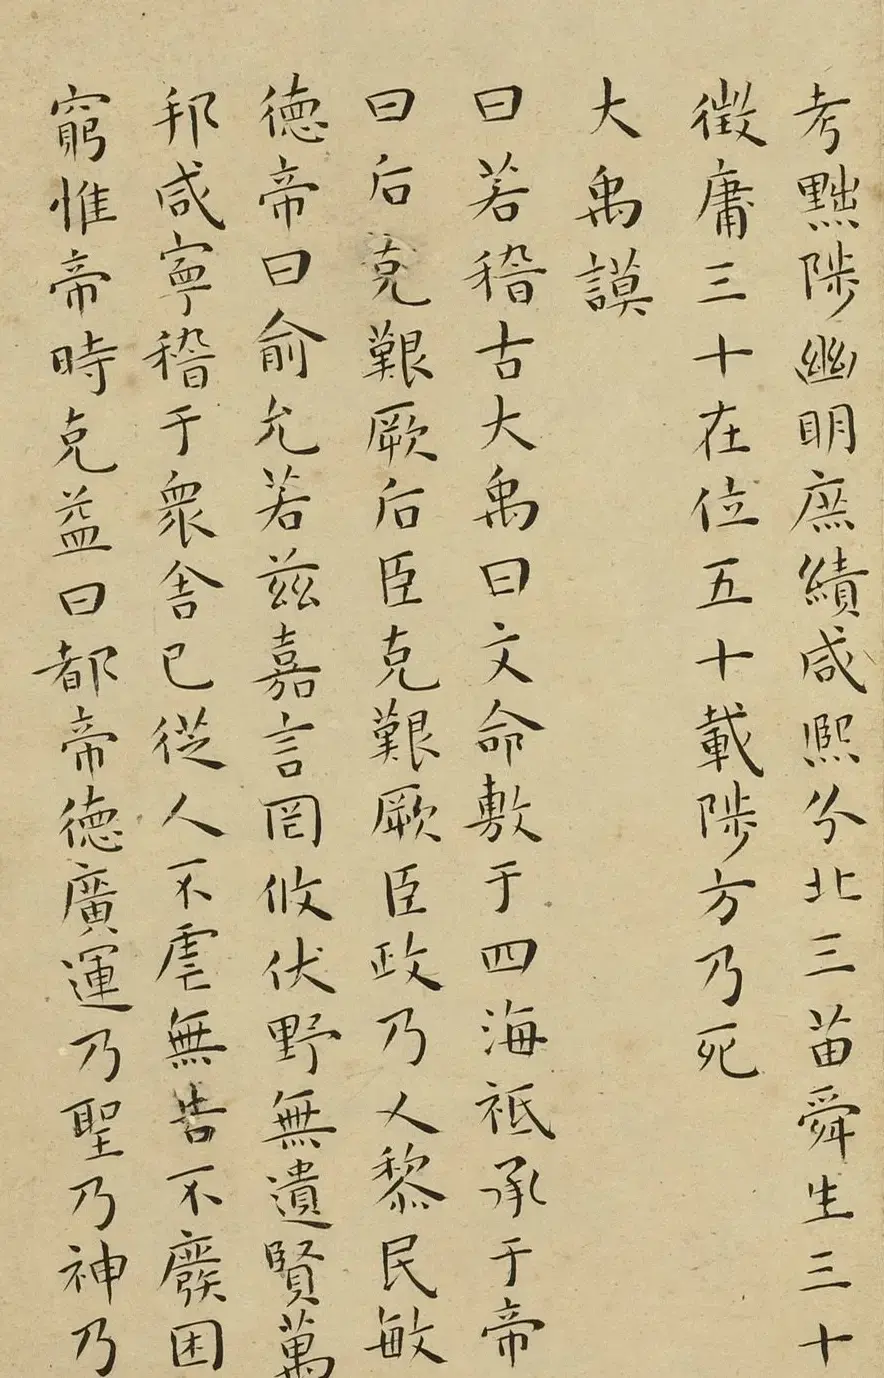 考黜陟幽明庶績咸熙分北三苗舜生三十
徵庸三十在位五十載陟方乃死
大禹謨
曰若稽古大禹曰文命敷于四海祗承于帝
曰后克艱厥后臣克艱厥臣政乃乂黎民敏
德帝曰俞允若茲嘉言罔攸伏野無遺賢萬
邦咸寧稽于衆舍己從人不虐無告不廢困
窮惟帝時克益曰都帝德廣運乃聖乃神乃